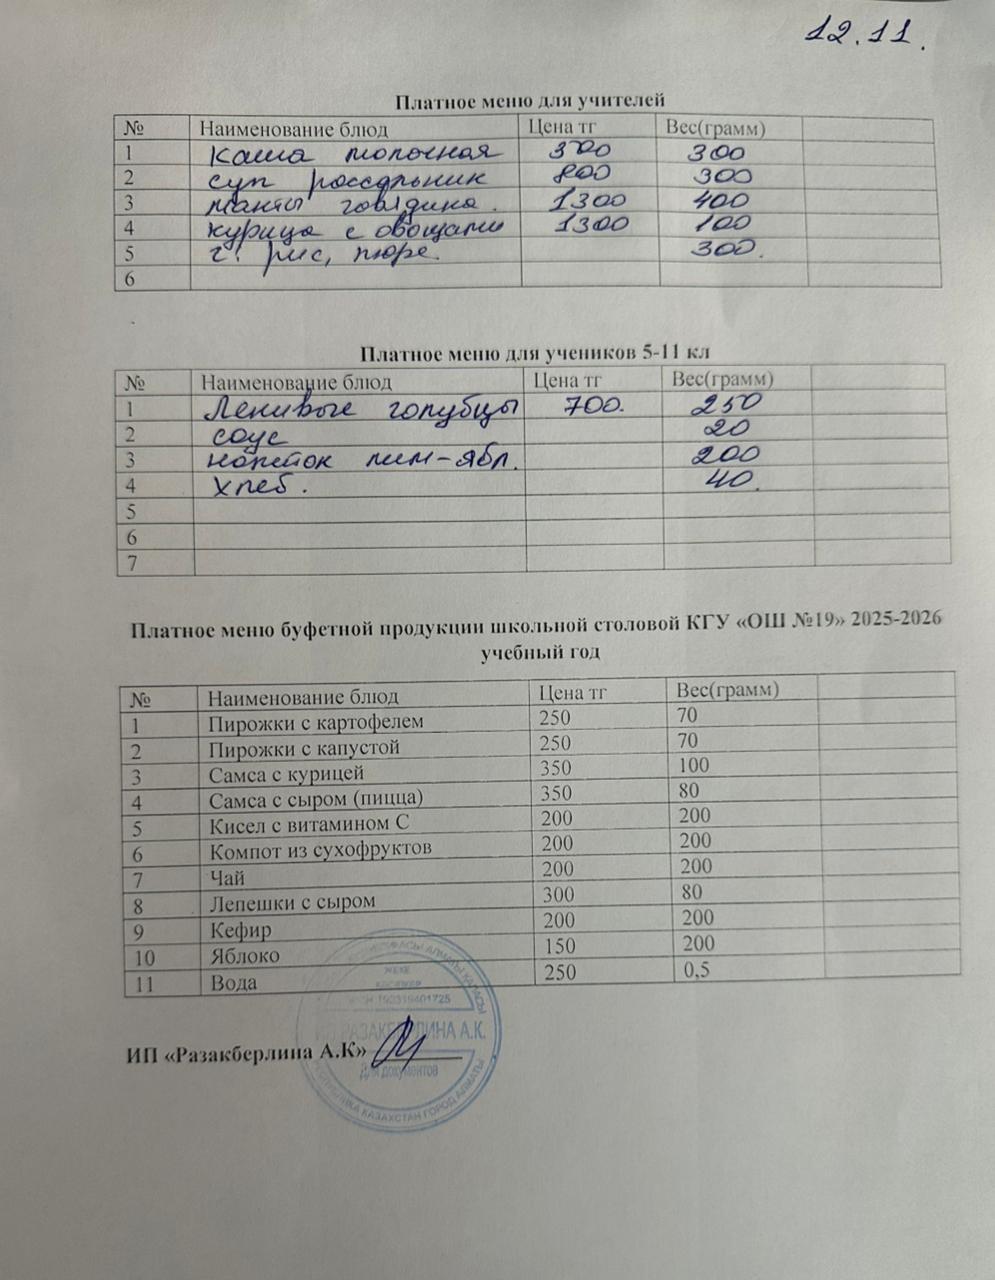 12.11.
Платное меню для учителей
№ Наименование блюд Цена тг Вес(грамм)
1 Каша молочная 300
2 суп рассольник 800 300
3 манты говядина. 1300 400
4 курица с овощами 1300 100
5 г. рис, пюре. 300.
6
Платное меню для учеников 5-11 кл
№ Наименование блюд Цена тг Вес(грамм)
1 Ленивые голубцы 700. 250
2 соус 20
3 напиток лим-ябл. 200
4 Хлеб. 40.
5
6
7
Платное меню буфетной продукции школьной столовой КГУ «ОШ №19» 2025-2026
учебный год
№ Наименование блюд Цена тг Вес(грамм)
1 Пирожки с картофелем 250 70
2 Пирожки с капустой 250 70
3 Самса с курицей 350 100
4 Самса с сыром (пицца) 350 80
5 Кисел с витамином С 200 200
6 Компот из сухофруктов 200 200
7 Чай 200 200
8 Лепешки с сыром 300 80
9 Кефир 200 200
10 Яблоко 150 200
11 Вода 250 0,5
ИП «Разакберлина А.К»
ИП РАЗАКБЕРЛИНА А.К.
Для документов
РЕСПУБЛИКА КАЗАХСТАН ГОРОД АЛМАТЫ